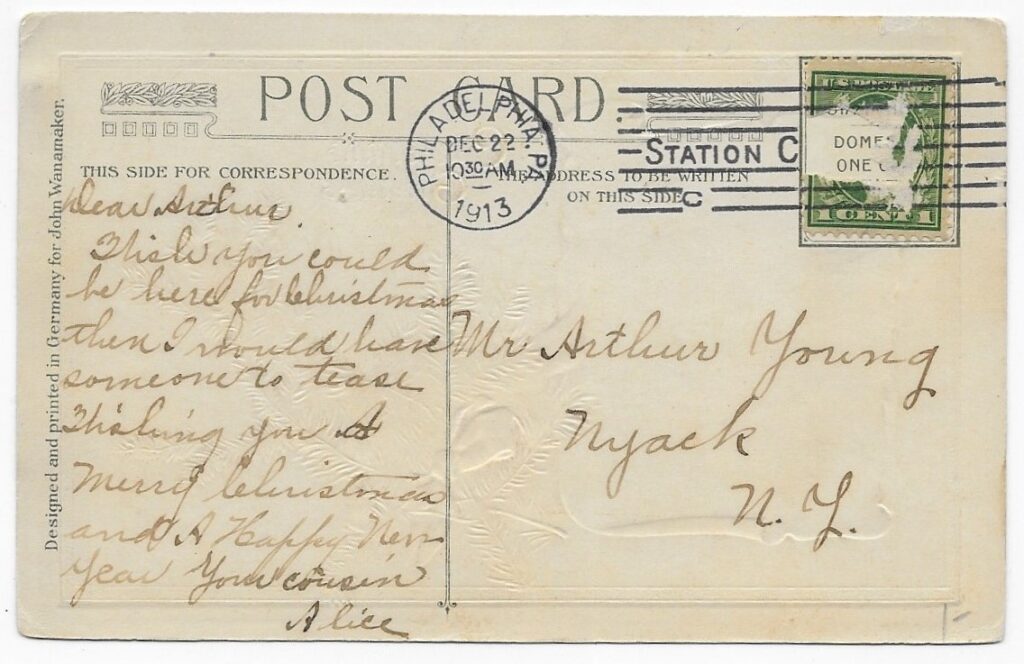 POST CARD.
PHILADELPHIA, PA.
DEC 22
10 30 AM
1913
STATION C
C
U.S. POSTAGE
DOMES
ONE C
1 CENT 1
THIS SIDE FOR CORRESPONDENCE.
THE ADDRESS TO BE WRITTEN
ON THIS SIDE
Designed and printed in Germany for John Wanamaker.
Dear Arthur
I Wish you could
be here for Christmas
then I would have
someone to tease
Wishing you A
Merry Christmas
and A Happy New
Year Your cousin
Alice
Mr Arthur Young
Nyack
N. Y.